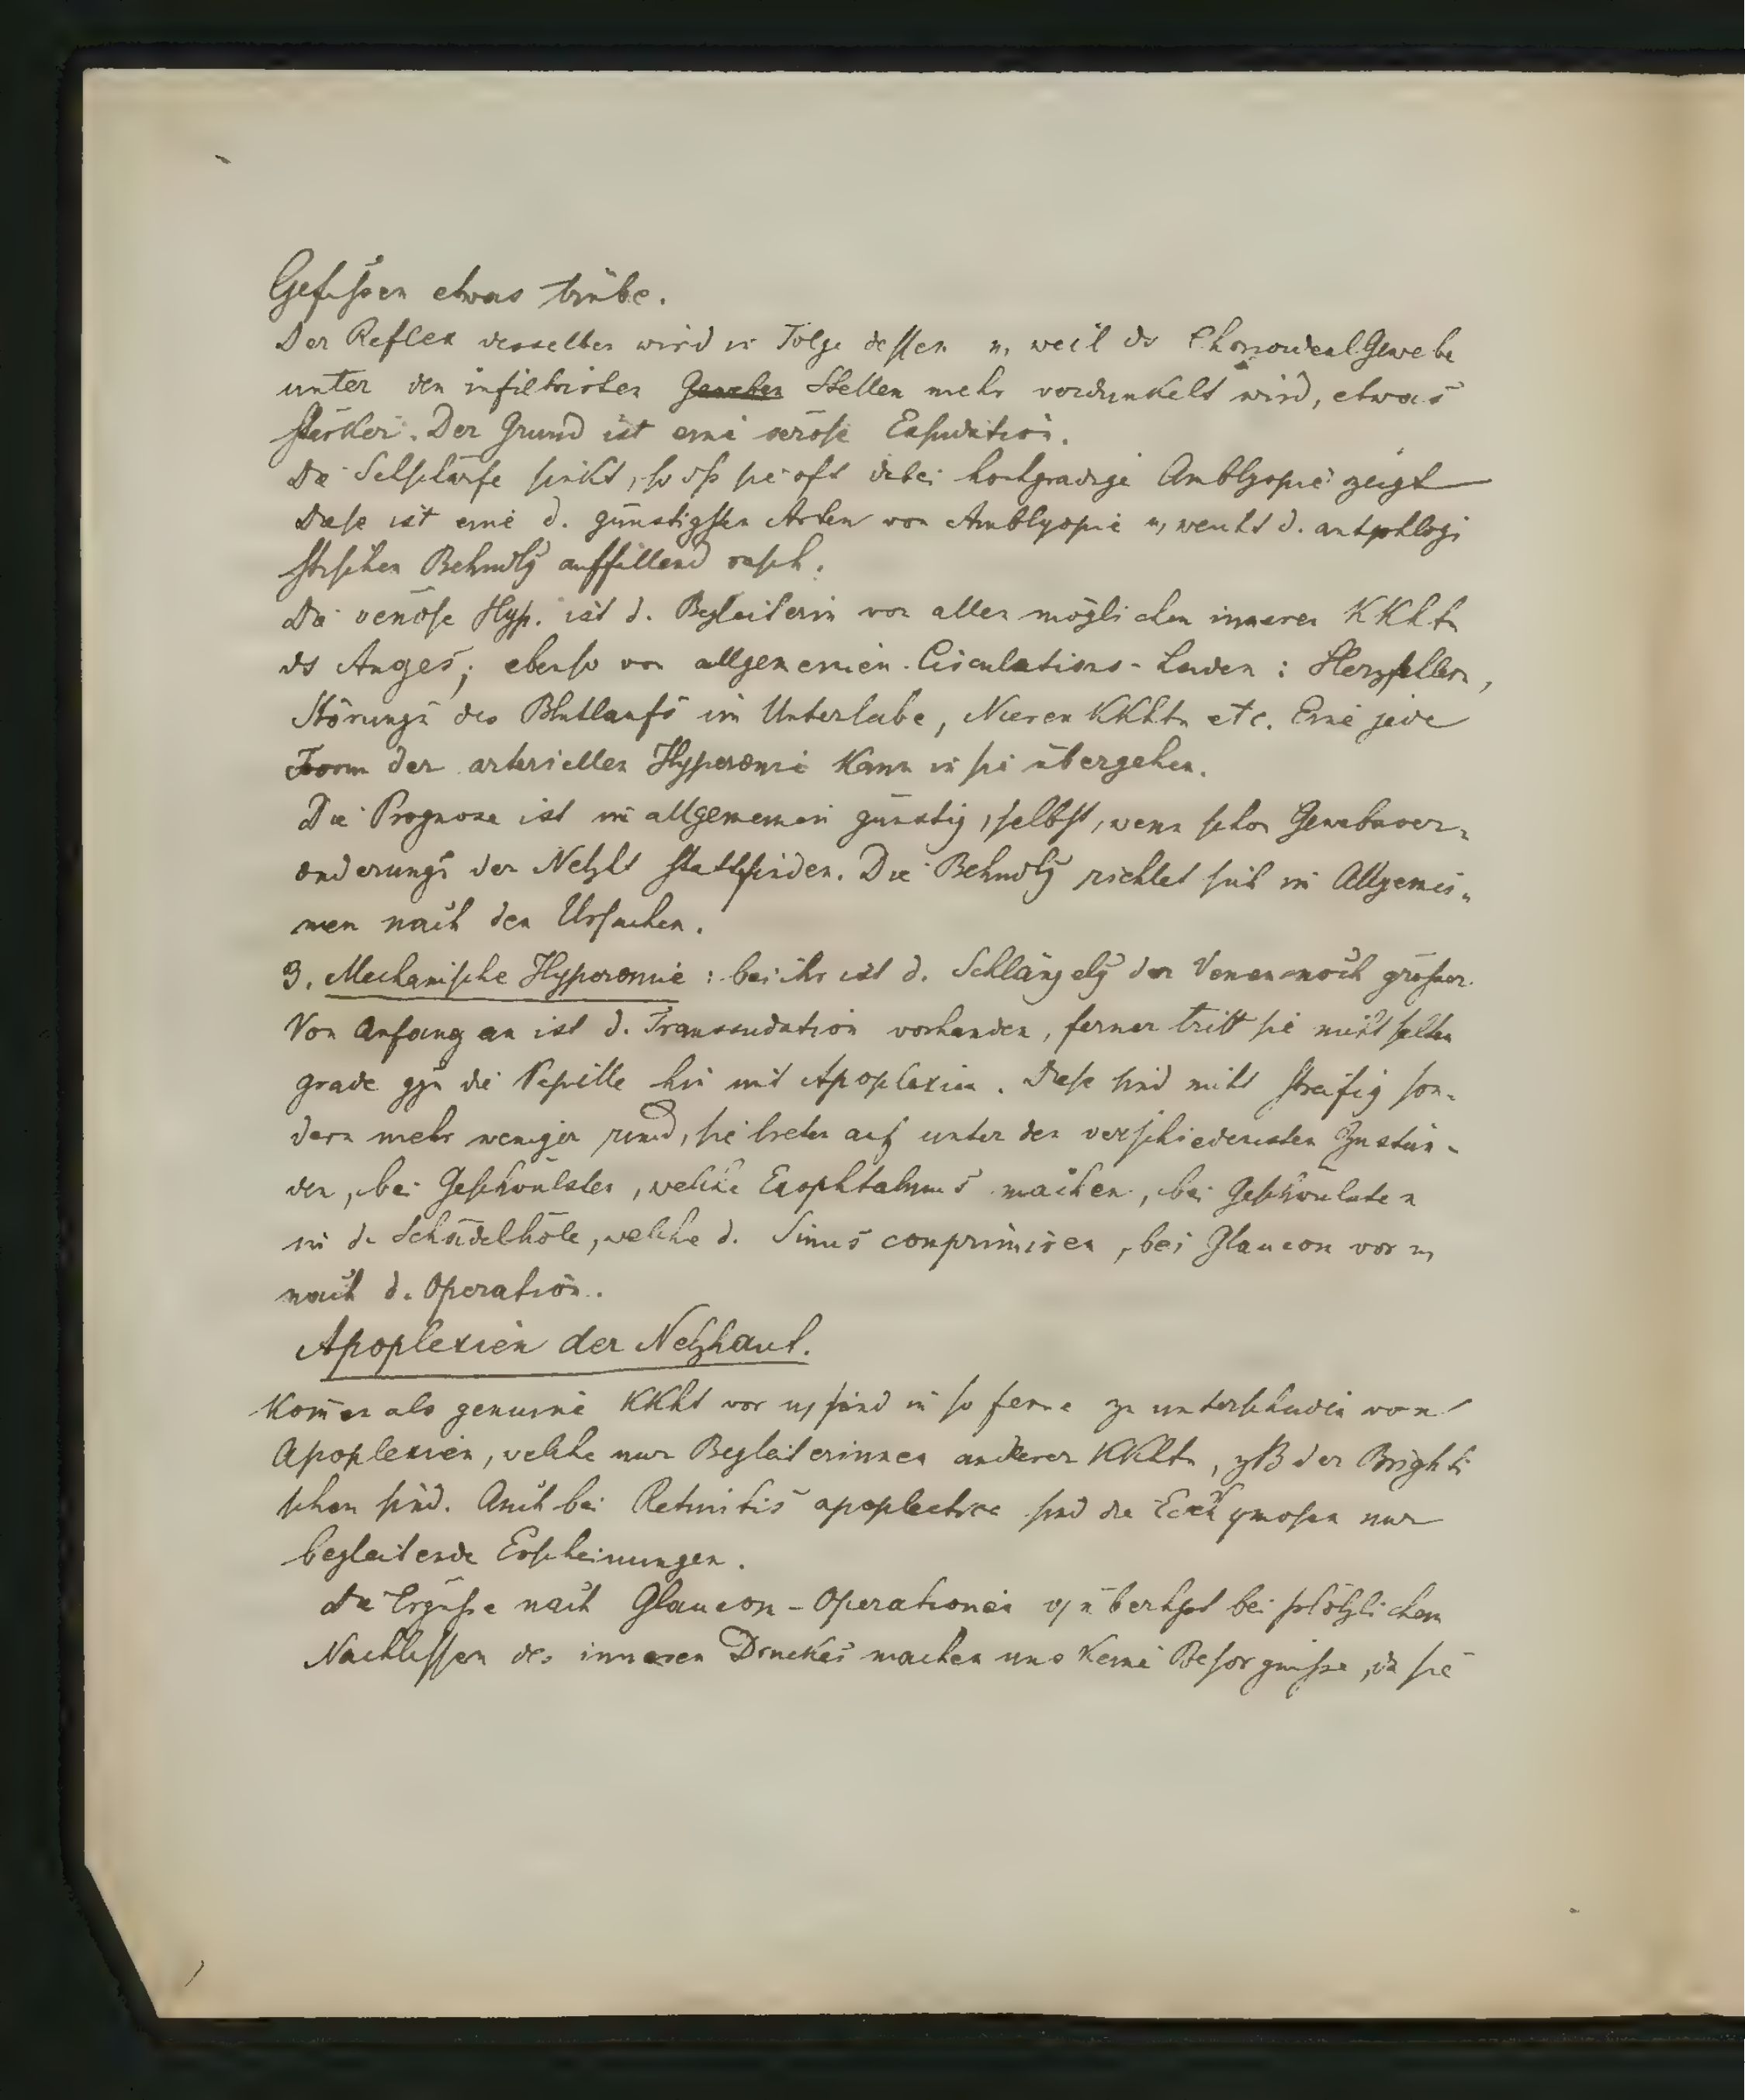 Gefässen etwas trübe.
Der Reflex desselben wird in Folge dessen u, weil ds ChoroidealGewebe
unter den infiltrirten Geweben Stellen mehr verdunkelt wird, etwas
stärker. Der Grund ist eine seröse Exsudation.
Die Sehschärfe sinkt, so dss sie oft dabei hochgradige Amblyopie zeigt
Diese ist eine d. günstigsten Arten von Amblyopie u, weicht d. antiphlogi
stischen Behndlg auffallend rasch.
Die venöse Hyp. ist d. Begleiterin von allen möglichen inneren KKhtn
ds Auges; ebenso von allgemeinen Circulations-Leiden: Herzfellern,
Störungn des Blutlaufs im Unterleibe, Nieren KKhtn etc. Eine jede
Form der arteriellen Hyperämie kann in sie übergehen.
Die Prognose ist im allgemeinen günstig, selbst, wenn schon Gewebsver-
änderungn der Netzht stattfinden. Die Behndlg richtet sich im Allgemei-
nen nach den Ursachen.
3. Mechanische Hyperämie: bei ihr ist d. Schlängelg der Venen noch grösser.
Von Anfang an ist d. Transsudation vorhanden, ferner tritt sie nicht selten
grade ggn die Papille hin mit Apoplexien. Diese sind nicht streifig son-
dern mehr weniger rund, sie treten auf unter den verschiedensten Zustän-
den, bei Geschwülsten, welche Exophtalmus machen, bei Geschwülsten
in d. Schädelhöle, welche d. Sinus comprimiren, bei Glaucom vor u,
nach d. Operation.
Apoplexien der Netzhaut.
Kom̄en als genuine KKht vor u, sind in so ferne zu unterscheiden von
Apoplexien, welche nur Begleiterinnen anderer KKhtn, zB der Brighti
schen sind. Auch bei Retinitis apoplectica sind die Ecchymosen nur
begleitende Erscheinungen.
Die Ergüsse nach Glaucom-Operationen u, überhpt bei plötzlichem
Nachlassen des inneren Druckes machen uns keine Besorgnisse, da sie